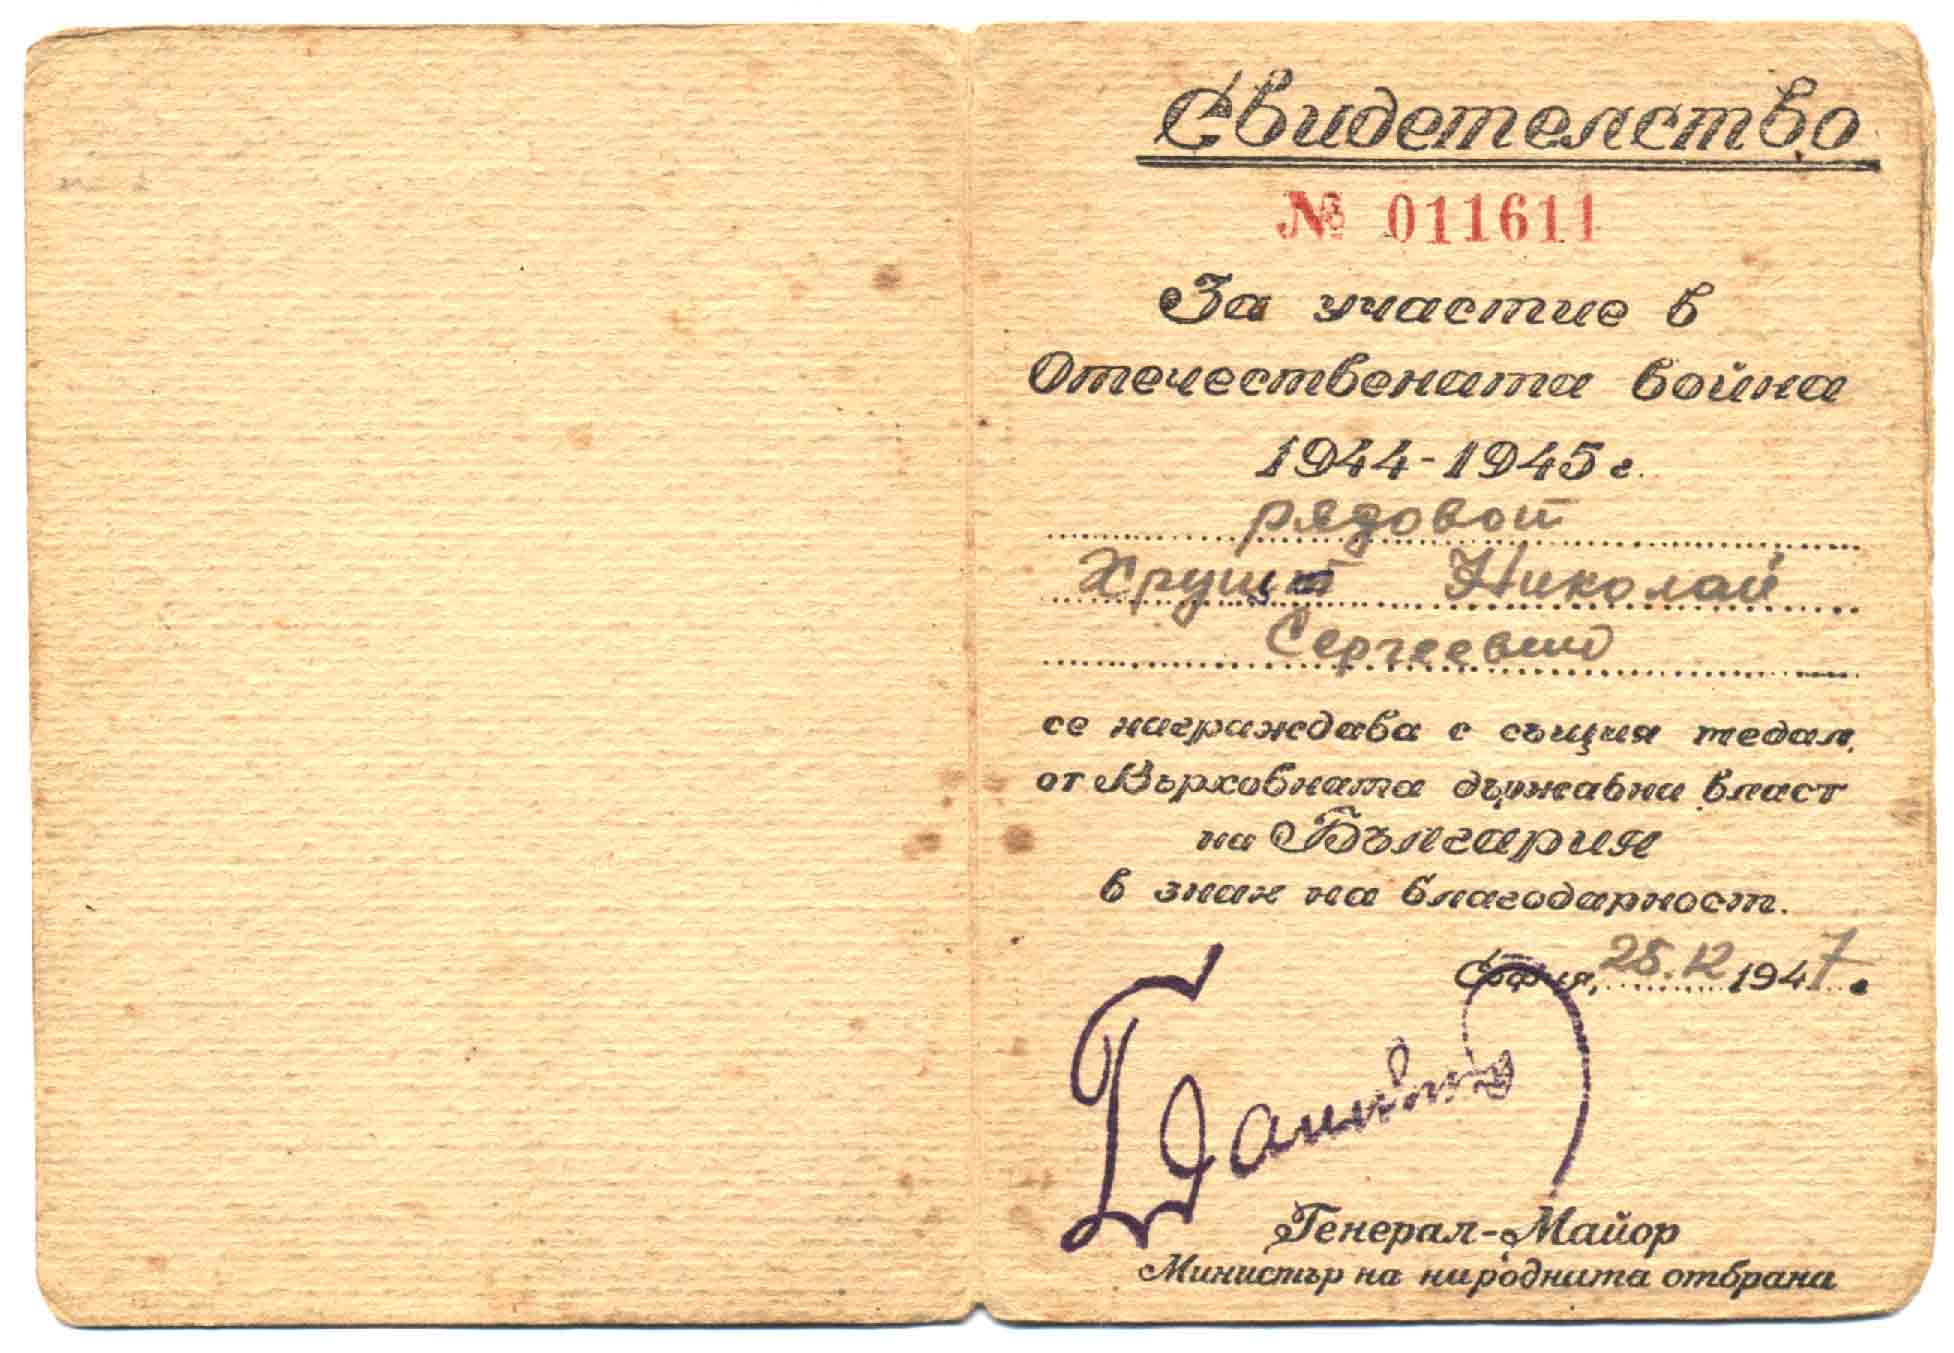 Свидетелство
№ 011611
За участие в
Отечествената война
1944-1945 г.
рядовой
Николай
Сергеевич
се награждава с същия медал
от Върховната държавна власт
на България
в знак на благодарност.
София, 25.12 1947 г.
Генерал-Майор
Министър на народната отбрана